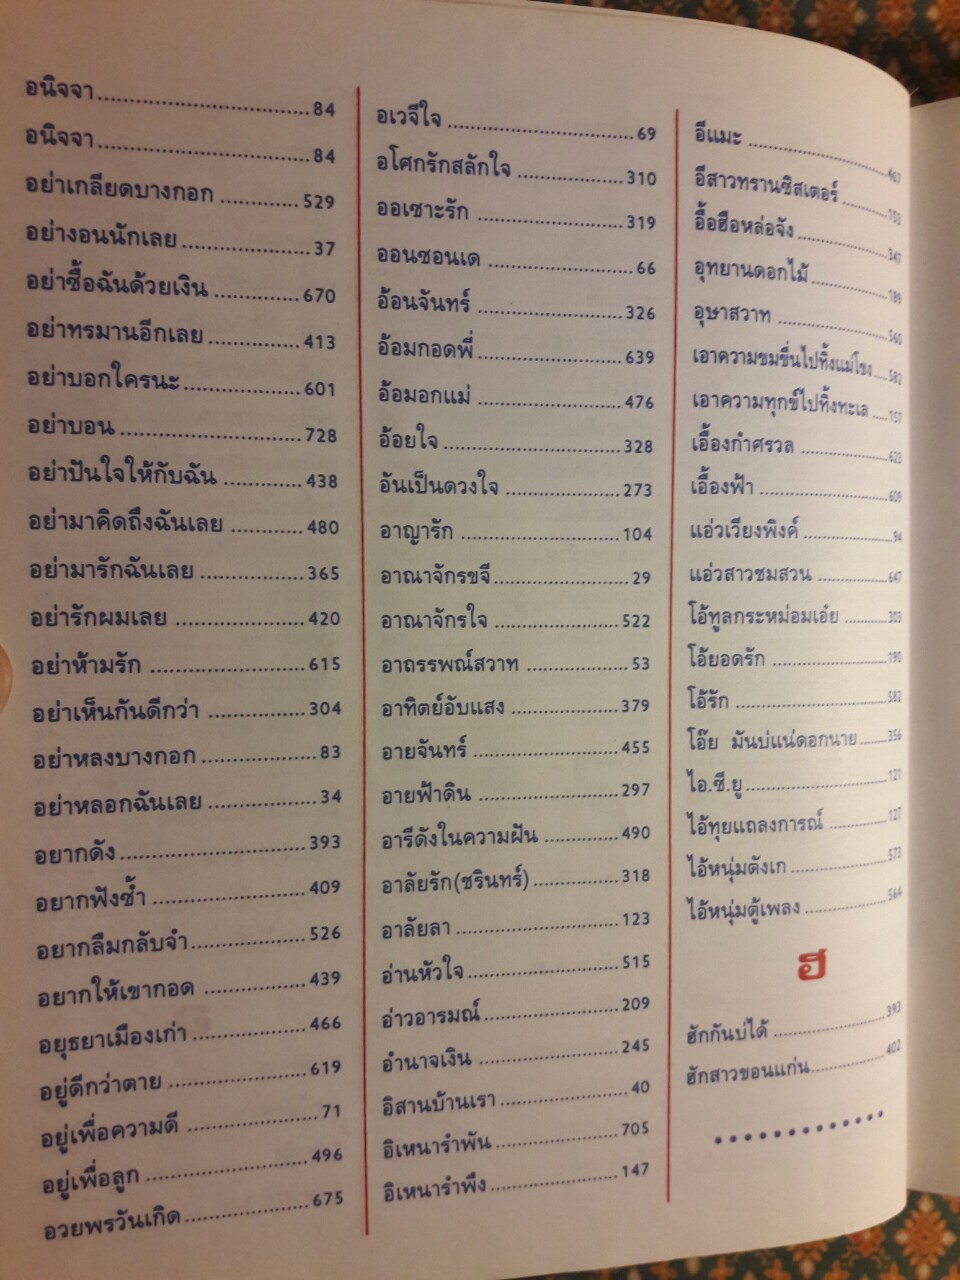 อนิจจา 84
อนิจจา 84
อย่าเกลียดบางกอก 529
อย่างอนนักเลย 37
อย่าซื้อฉันด้วยเงิน 670
อย่าทรมานอีกเลย 413
อย่าบอกใครนะ 601
อย่าบอน 728
อย่าปันใจให้กับฉัน 438
อย่ามาคิดถึงฉันเลย 480
อย่ามารักฉันเลย 365
อย่ารักผมเลย 420
อย่าห้ามรัก 615
อย่าเห็นกันดีกว่า 304
อย่าหลงบางกอก 83
อย่าหลอกฉันเลย 34
อยากดัง 393
อยากฟังซ้ำ 409
อยากลืมกลับจำ 526
อยากให้เขากอด 439
อยุธยาเมืองเก่า 466
อยู่ดีกว่าตาย 619
อยู่เพื่อความดี 71
อยู่เพื่อลูก 496
อวยพรวันเกิด 675
อเวจีใจ 69
อโศกรักสลักใจ 310
ออเซาะรัก 319
ออนซอนเด 66
อ้อนจันทร์ 326
อ้อมกอดพี่ 639
อ้อมอกแม่ 476
อ้อยใจ 328
อันเป็นดวงใจ 273
อาญารัก 104
อาณาจักรขจี 29
อาณาจักรใจ 522
อาถรรพณ์สวาท 53
อาทิตย์อับแสง 379
อายจันทร์ 455
อายฟ้าดิน 297
อารีดังในความฝัน 490
อาลัยรัก(ชรินทร์) 318
อาลัยลา 123
อ่านหัวใจ 515
อ่าวอารมณ์ 209
อำนาจเงิน 245
อิสานบ้านเรา 40
อิเหนารำพัน 705
อิเหนารำพึง 147
อีแมะ 467
อีสาวทรานซิสเตอร์ 103
อื้อฮือหล่อจัง 347
อุทยานดอกไม้ 189
อุษาสวาท 560
เอาความขมขื่นไปทิ้งแม่โขง 582
เอาความทุกข์ไปทิ้งทะเล 157
เอื้องกำศรวล 623
เอื้องฟ้า 609
แอ่วเวียงพิงค์ 94
แอ่วสาวชมสวน 647
โอ้ทูลกระหม่อมเอ๋ย 303
โอ้ยอดรัก 190
โอ้รัก 582
โอ๊ย มันบ่แน่ดอกนาย 356
ไอ.ซี.ยู 121
ไอ้ทุยแถลงการณ์ 127
ไอ้หนุ่มตังเก 573
ไอ้หนุ่มตู้เพลง 564
ฮ
ฮักกันบ่ได้ 393
ฮักสาวขอนแก่น 402